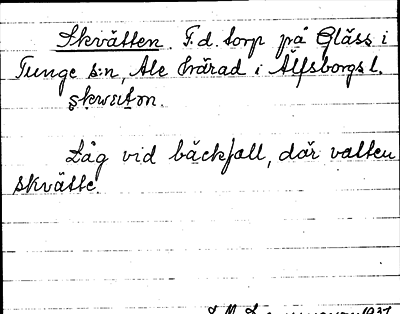 Skvätten. F.d. torp på Gläss i
Tunge s:n, Ale härad i Älfsborgs l.
skwɛtən.
Låg vid bäckfall, där vatten
skvätte.
1937